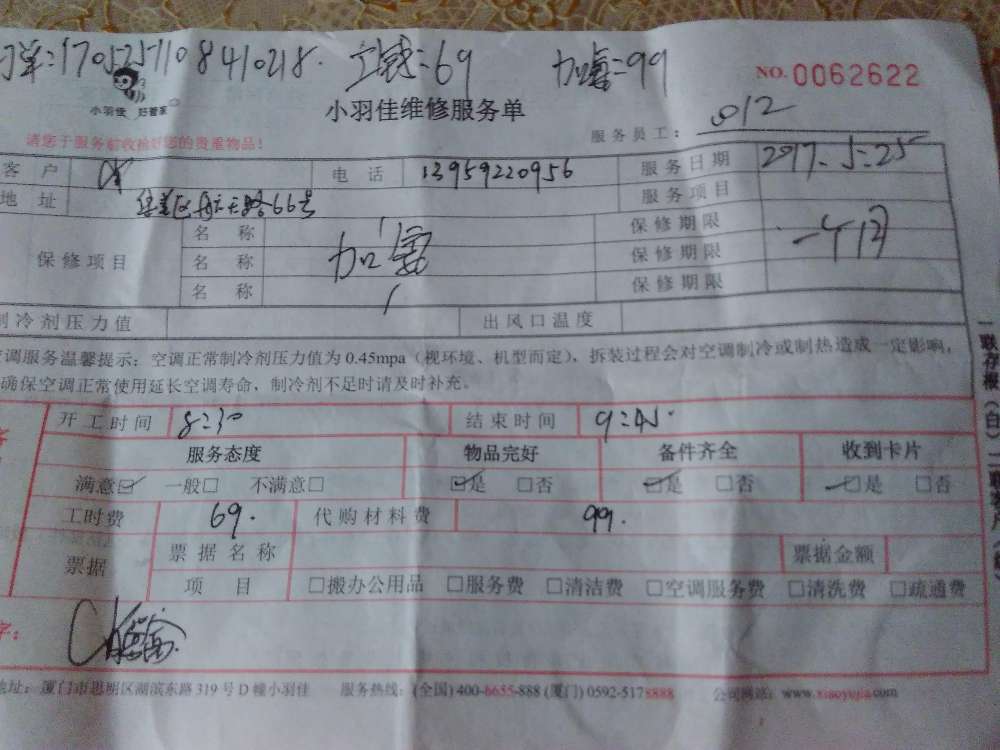 单:1705257108410218. 工钱:69 加氟:99
NO. 0062622
小羽佳 好管家
小羽佳维修服务单
请您于服务前收捡好您的贵重物品!
服务员工: 012
客 户 电 话 13959220956 服务日期 2017.5.25
地 址 集美区 66号 服务项目
保修项目 名 称 保修期限
名 称 加氟 保修期限 一个月
名 称 保修期限
制冷剂压力值 出风口温度
空调服务温馨提示: 空调正常制冷剂压力值为0.45mpa(视环境、机型而定), 拆装过程会对空调制冷或制热造成一定影响,
确保空调正常使用延长空调寿命, 制冷剂不足时请及时补充。
开工时间 8:30 结束时间 9:45.
服务态度 物品完好 备件齐全 收到卡片
满意☑ 一般□ 不满意□ ☑是 □否 ☑是 □否 ☑是 □否
工时费 69. 代购材料费 99.
票据 票据名称 票据金额
项 目 □搬办公用品 □服务费 □清洁费 □空调服务费 □清洗费 □疏通费
字:
地址: 厦门市思明区湖滨东路319号D幢小羽佳 服务热线: (全国) 400-6655-888 (厦门) 0592-5178888 公司网站: www.xiaoyujia.com